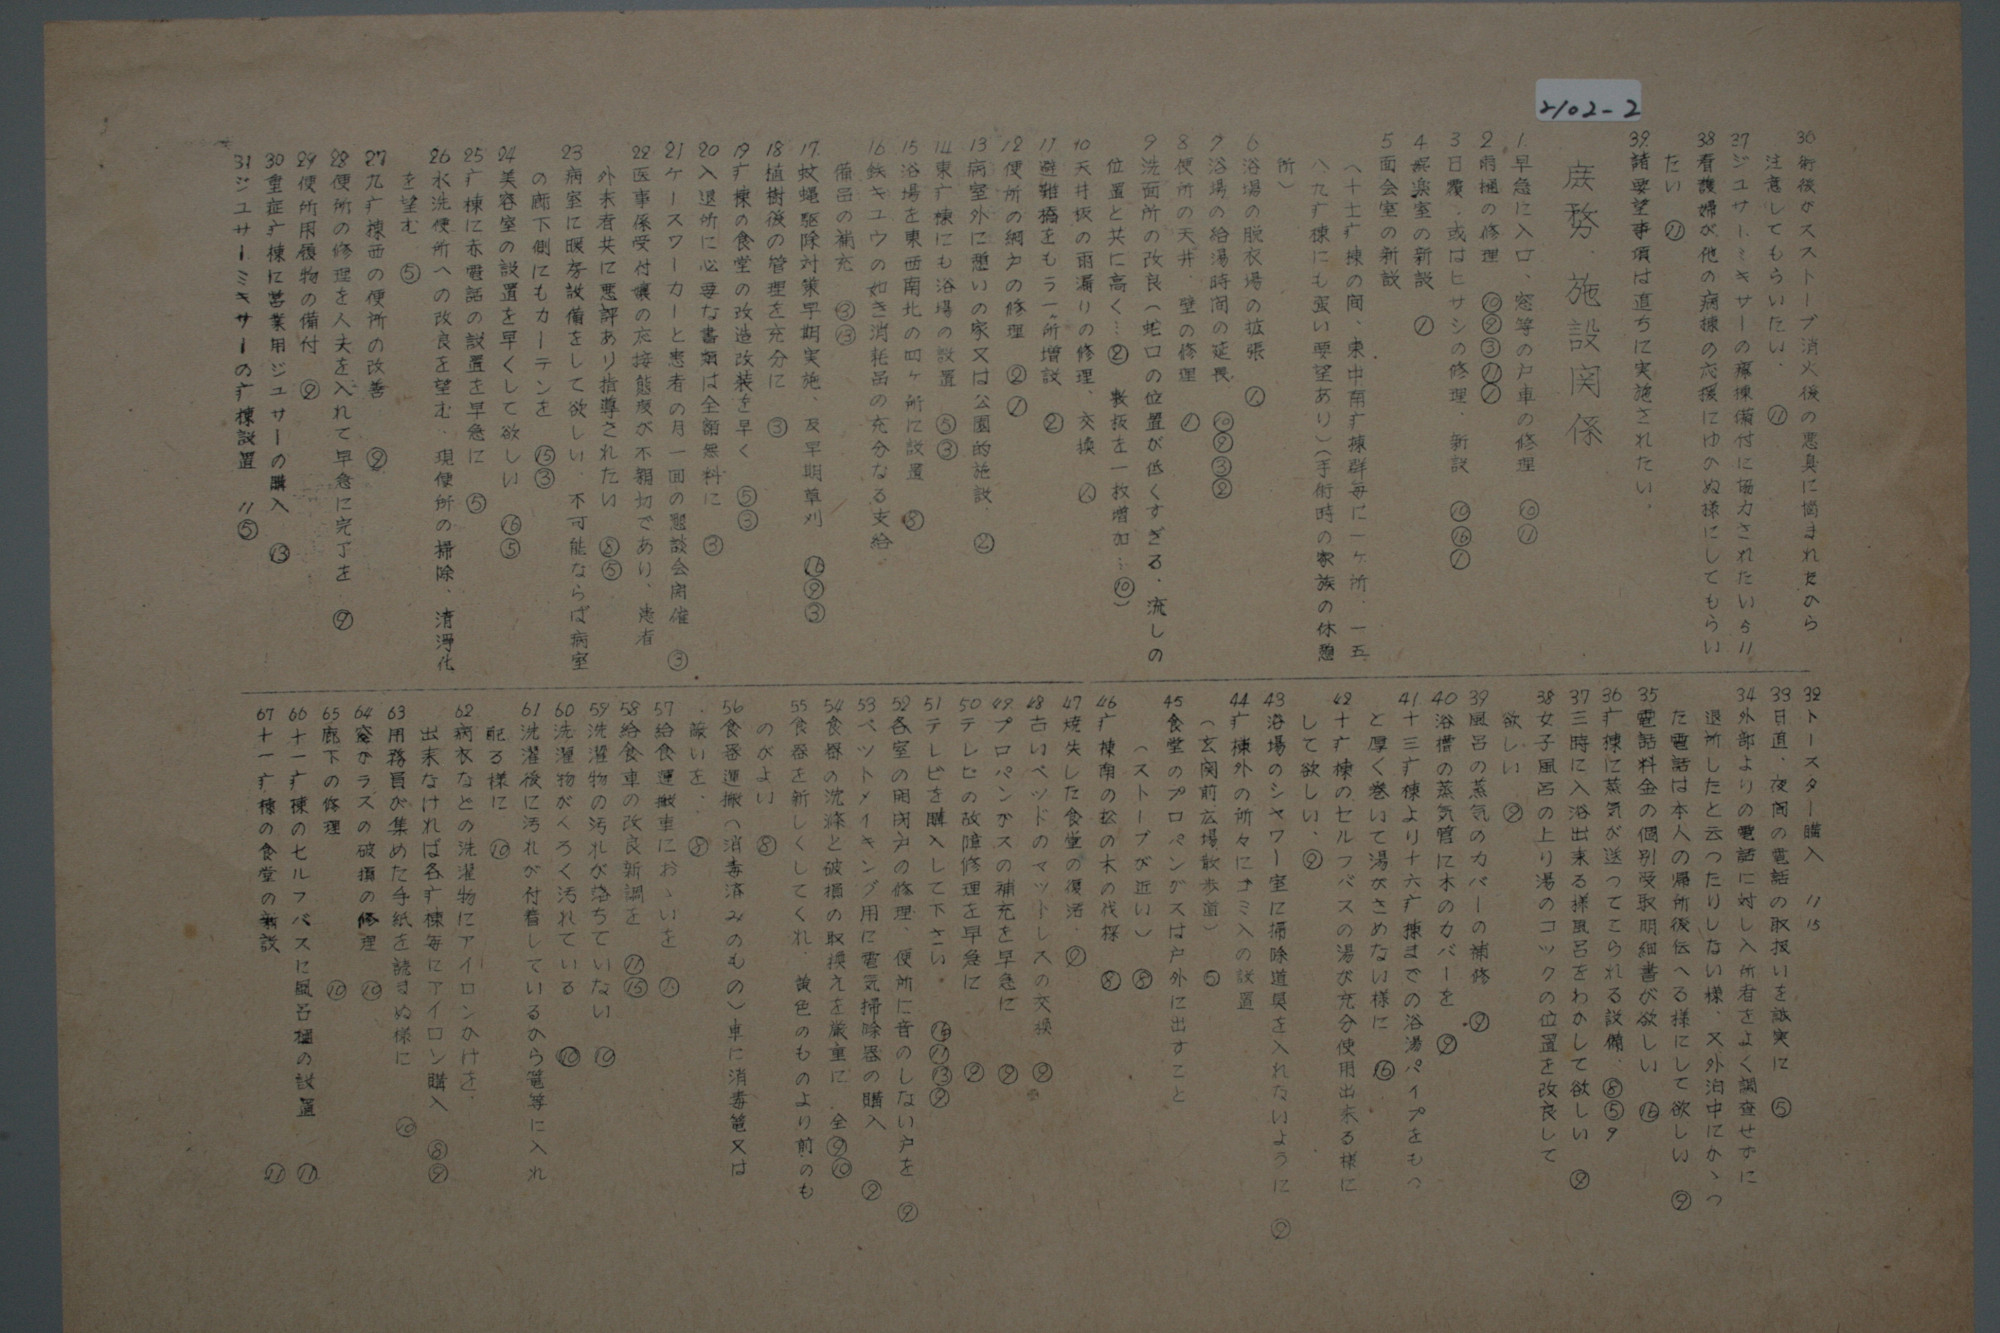 2102-2
36 術後がスストーブ消火後の悪臭に悩まれたから
注意してもらいたい。 ⑪
37 ジユサーミキサーの病棟備付に協力されたい
38 看護婦が他の病棟の応援にゆかぬ様にしてもらい
たい
39 諸要望事項は直ちに実施されたい。
庶務・施設関係
1. 早急に入口、窓等の戸車の修理 ⑩⑪
2 雨樋の修理 ⑩⑨③
3 日覆、或はヒサシの修理、新設 ⑩⑯①
4 娯楽室の新設 ①
5 面会室の新設
(十土疒棟の間、東中南疒棟群毎に一ヶ所、一五
八九疒棟にも蛩い要望あり)(手術時の家族の休憩
所)
6 浴場の脱衣場の拡張 ①
7 浴場の給湯時間の延長、⑩⑨③②
8 便所の天井、壁の修理 ①
9 洗面所の改良(蛇口の位置が低くすぎる・流しの
位置と共に高く…② 敷板を一枚増加…⑩)
10 天井板の雨漏りの修理、交換
11 避難橋をもう一ヶ所増設 ②
12 便所の網戸の修理 ②①
13 病室外に憩いの家又は公園的施設、②
14 東疒棟にも浴場の設置 ⑤③
15 浴場を東西南北の四ヶ所に設置 ⑧
16 鉄キユウの如き消耗品の充分なる支給
備品の補充 ③⑬
17. 蚊蝿駆除対策早期実施、及早期草刈 ⑯⑨③
18 植樹後の管理を充分に ③
19 疒棟の食堂の改造改装を早く ⑤③
20 入退所に必要な書類は全額無料に ③
21 ケースワーカーと患者の月一回の懇談会開催 ③
22 医事係受付嬢の応接態度が不親切であり、患者
外来者共に悪評あり指導されたい ⑧⑤
23 病室に暖房設備をして欲しい、不可能ならば病室
の廊下側にもカーテンを ⑮③
24 美容室の設置を早くして欲しい ⑯⑤
25 疒棟に赤電話の設置を早急に ⑤
26 水洗便所への改良を望む・現便所の掃除、清浄化
を望む ⑤
27 九疒棟西の便所の改善 ⑨
28 便所の修理を人夫を入れて早急に完了を ⑨
29 便所用履物の備付 ⑨
30 重症疒棟に営業用ジユサーの購入 ⑬
31 ジユサーミキサーの疒棟設置 〃⑤
32 トースター購入 〃15
33 日直、夜間の電話の取扱いを誠実に ⑤
34 外部よりの電話に対し入所者をよく調査せずに
退所したと云ったりしない様、又外泊中にかゝつ
た電話は本人の帰所後伝へる様にして欲しい ⑨
35 電話料金の個別受取明細書が欲しい ⑯
36 疒棟に蒸気が送ってこられる設備、⑧⑤9
37 三時に入浴出来る様風呂をわかして欲しい ⑨
38 女子風呂の上り湯のコックの位置を改良して
欲しい ⑨
39 風呂の蒸気のカバーの補修 ⑨
40 浴槽の蒸気管に木のカバーを ⑨
41 十三疒棟より十六疒棟までの浴湯パイプをもっ
と厚く巻いて湯がさめない様に ⑯
42 十疒棟のセルフバスの湯が充分使用出来る様に
して欲しい、⑨
43 浴場のシヤワー室に掃除道具を入れないように ⑨
44 疒棟外の所々にゴミ入の設置
(玄関前広場散歩道) ⑤
45 食堂のプロパンガスは戸外に出すこと
(ストーブが近い) ⑧
46 疒棟南の松の木の伐採 ⑧
47 焼失した食堂の復活、⑨
48 古いベッドのマットレスの交換 ⑨
49. プロパンガスの補充を早急に ⑨
50 テレビの故障修理を早急に ⑨
51 テレビを購入して下さい。⑯⑪⑬⑨
52 各室の開閉戸の修理、便所に音のしない戸を ⑨
53 ベットメイキング用に電気掃除器の購入 ⑨
54 食器の洗滌と破損の取換えを厳重に、全⑨⑩
55 食器を新しくしてくれ、黄色のものより前のも
のがよい ⑧
56 食器運搬(消毒済みのもの)車に消毒篭又は
蔽いを、⑧
57 給食運搬車におゝいを
58 給食車の改良新調を ⑪⑮
59 洗濯物の汚れが落ちていない ⑩
60 洗濯物がくろく汚れている ⑩
61 洗濯後に汚れが付着しているから篭等に入れ
配る様に ⑩
62 病衣などの洗濯物にアイロンかけを、
出来なければ各疒棟毎にアイロン購入 ⑧⑨
63 用務員が集めた手紙を読まぬ様に ⑩
64 窓ガラスの破損の修理 ⑩
65 廊下の修理 ⑩
66 十一疒棟のセルフバスに風呂桶の設置 ⑪
67 十一疒棟の食堂の新設 ⑪